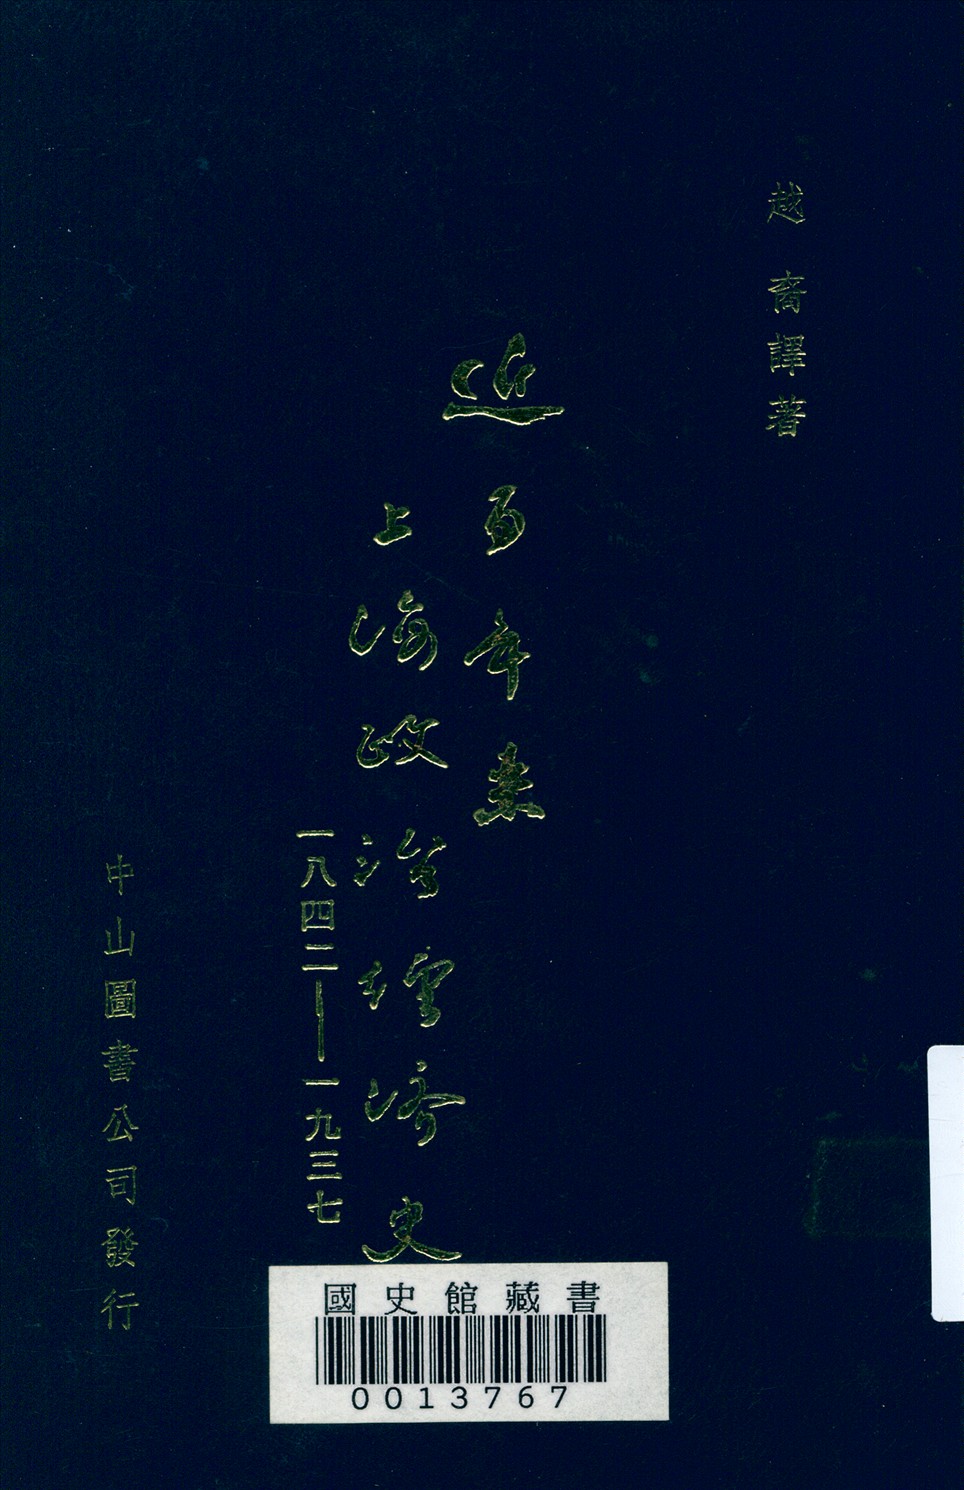 越裔譯著
近百年來
上海政治經濟史
一八四二——一九三七
中山圖書公司發行
國史館藏書
0013767